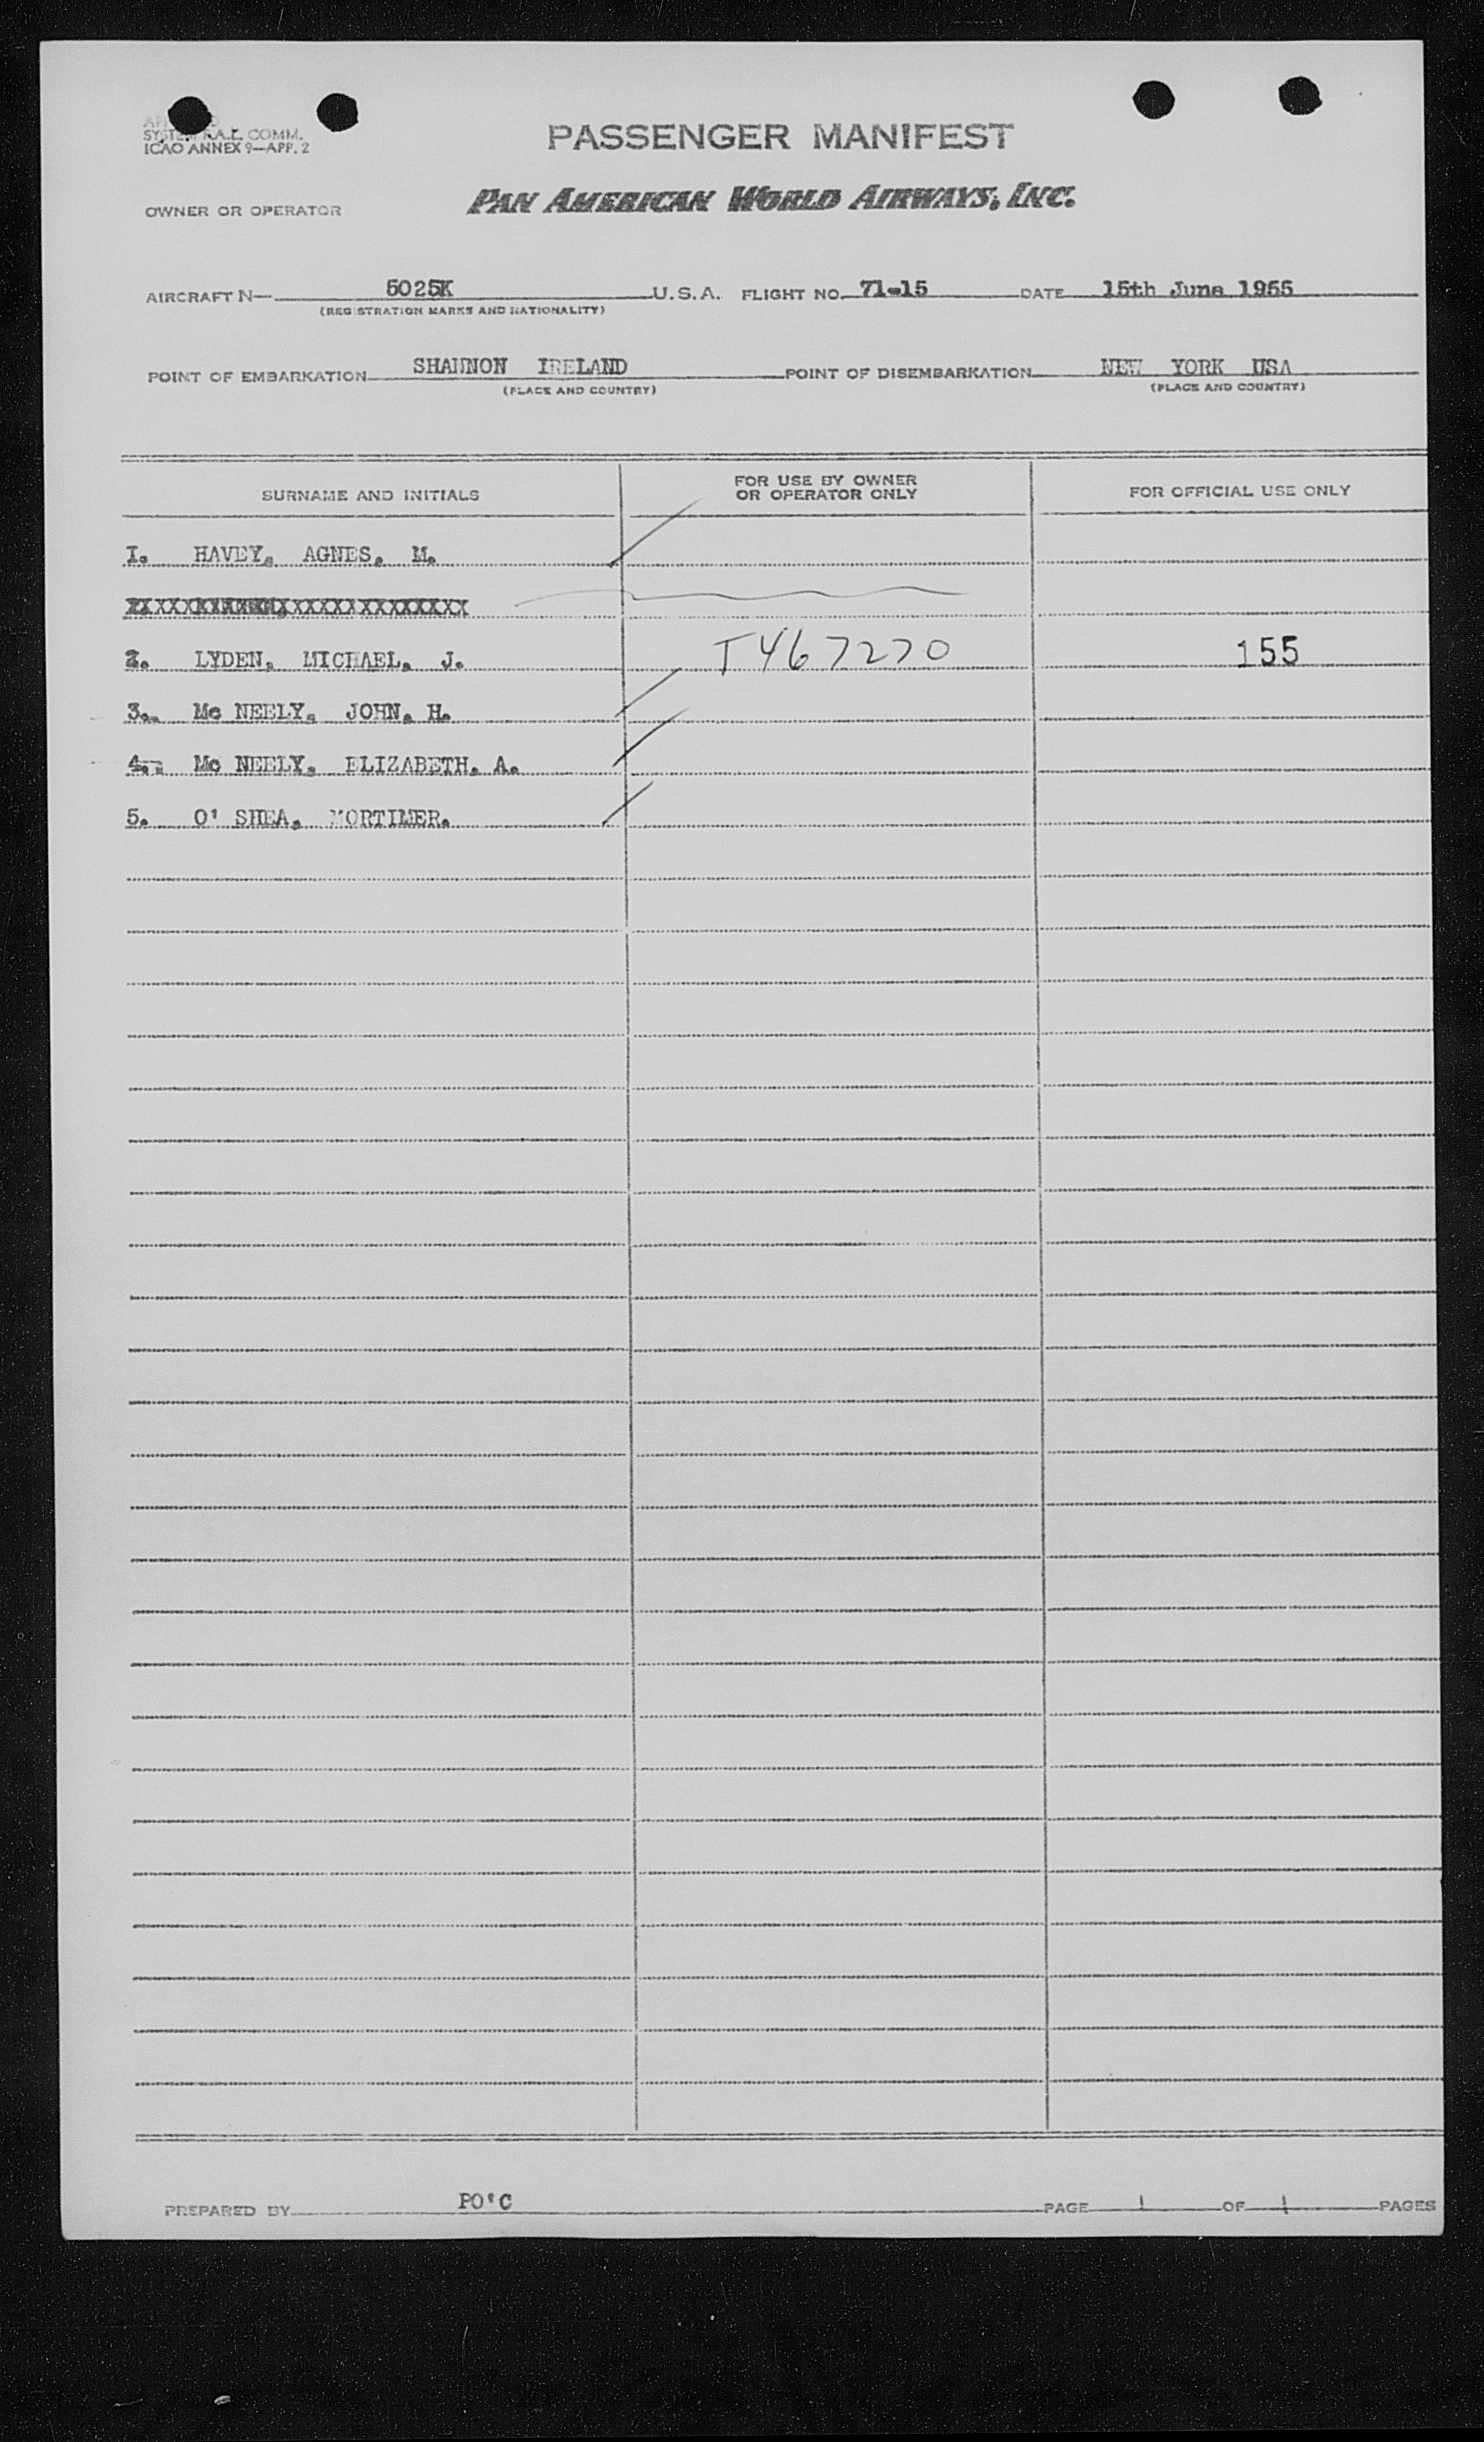 SYSTEM F.A.L. COMM.
ICAO ANNEX 9—APP. 2
PASSENGER MANIFEST
OWNER OR OPERATOR PAN AMERICAN WORLD AIRWAYS, INC.
AIRCRAFT N— 5025K U.S.A. FLIGHT NO. 71-15 DATE 15th June 1955
(REGISTRATION MARKS AND NATIONALITY)
POINT OF EMBARKATION SHANNON IRELAND POINT OF DISEMBARKATION NEW YORK USA
(PLACE AND COUNTRY) (PLACE AND COUNTRY)
SURNAME AND INITIALS FOR USE BY OWNER OR OPERATOR ONLY FOR OFFICIAL USE ONLY
1. HAVEY, AGNES, M.
2. LYDEN, MICHAEL, J. T467270 155
3. Mc NEELY, JOHN, H.
4. Mc NEELY, ELIZABETH, A.
5. O' SHEA, MORTIMER.
PREPARED BY PO'C PAGE 1 OF 1 PAGES